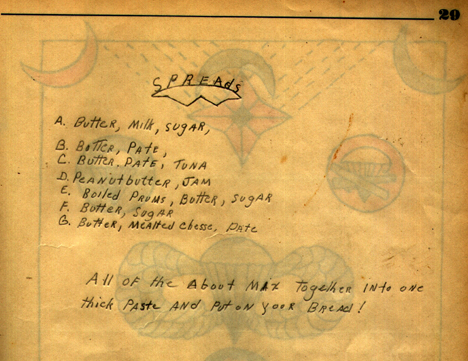 29
SPREADS
A. Butter, Milk, sugar,
B. Botter, Pate,
C. Butter, Pate, Tuna
D. Peanutbutter, Jam
E. Boiled Prums, Butter, Sugar
F. Butter, Sugar
G. Butter, Mealted Chesse, Pate
All of the About Mix Together into one
thick Paste And Put on your Bread!